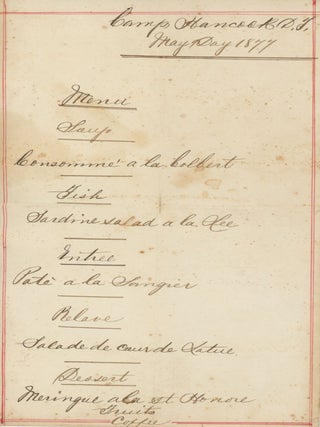 Camp Hancock D.T.
May Day 1877
Menu
Soup
Consommé a la Colbert
Fish
Sardine salad a la Lee
Entree
Paté a la
Relave
Salade de cour de Latue
Dessert
Meringue a la st Honore
Fruits
Coffee